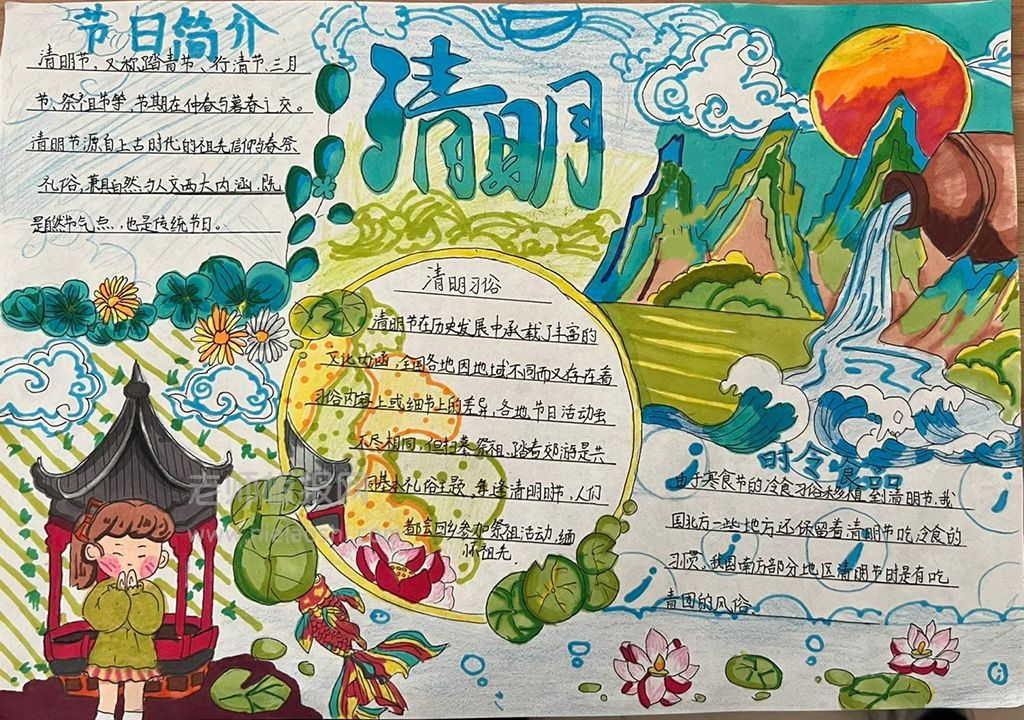 节日简介
清明节，又称踏青节、行清节、三月
节、祭祖节等，节期在仲春与暮春之交。
清明节源自上古时代的祖先信仰与春祭
礼俗，兼具自然与人文两大内涵，既
是自然节气点，也是传统节日。
清明
清明习俗
清明节在历史发展中承载了丰富的
文化内涵，全国各地因地域不同而又存在着
习俗内容上或细节上的差异，各地节日活动虽
不尽相同，但扫墓祭祖、踏青郊游是共
同基本礼俗主题，每逢清明明节，人们
都会回乡参加祭祖活动，缅
怀祖先.
时令食品
由于寒食节的冷食习俗移植到清明节，我
国北方一些地方还保留着清明节吃冷食的
习惯。我国南方部分地区清明节时是有吃
青团的风俗.